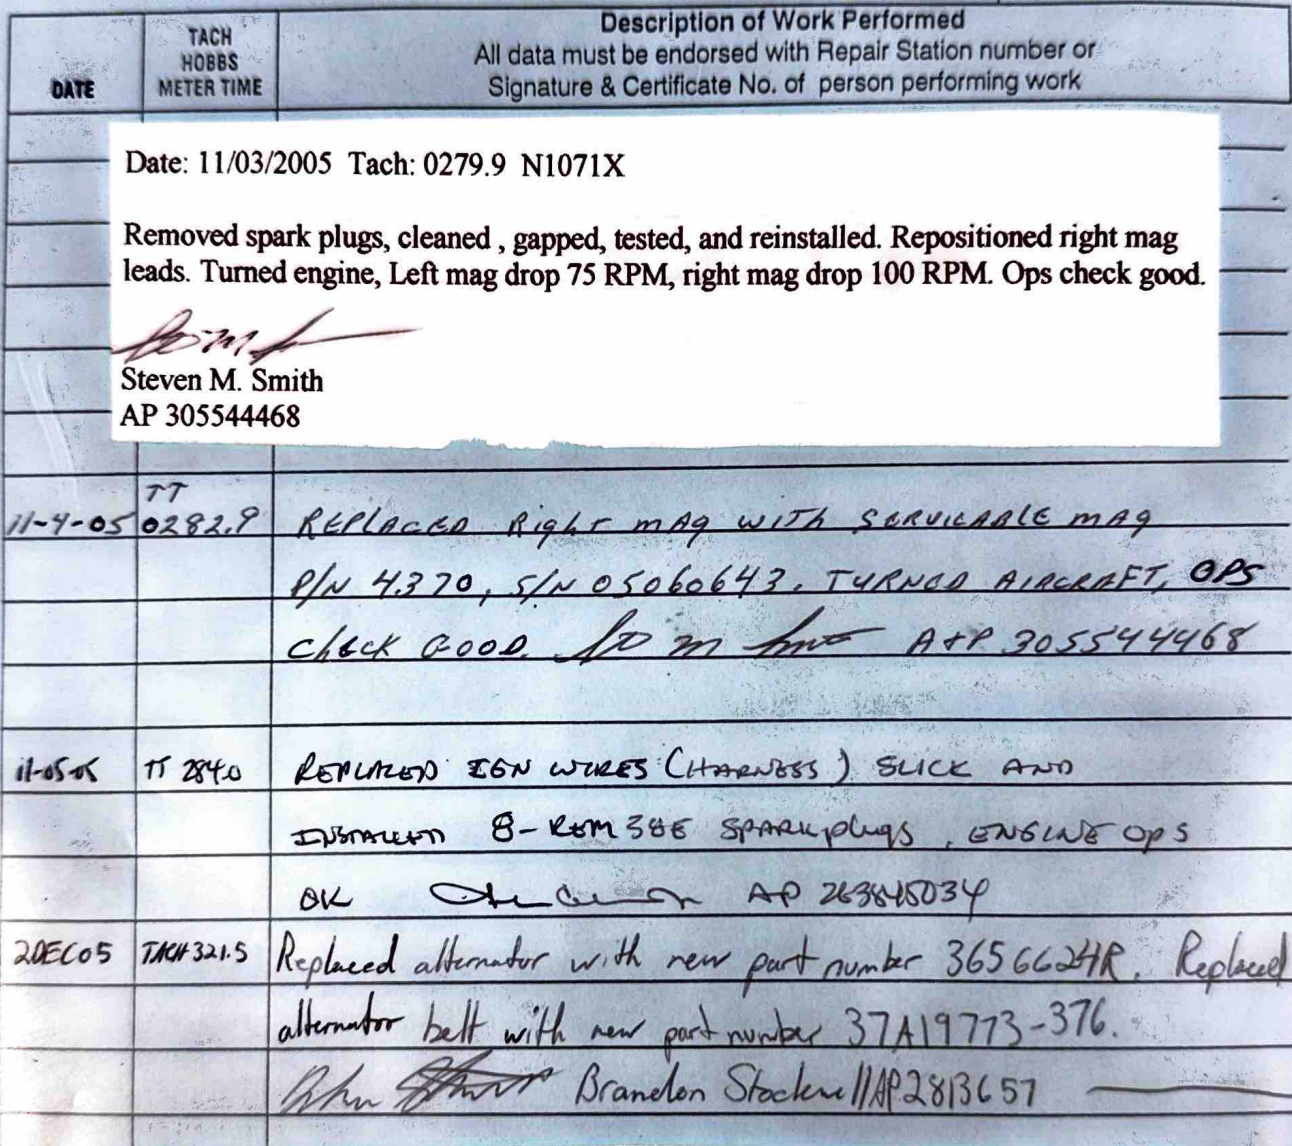 Description of Work Performed
TACH
HOBBS
METER TIME
All data must be endorsed with Repair Station number or
DATE
Signature & Certificate No. of person performing work
Date: 11/03/2005 Tach: 0279.9 N1071X
Removed spark plugs, cleaned , gapped, tested, and reinstalled. Repositioned right mag
leads. Turned engine, Left mag drop 75 RPM, right mag drop 100 RPM. Ops check good.
Steven M. Smith
AP 305544468
TT
11-4-05 0282.9 REPLACED Right mag WITH SERVICABLE mag
P/N 4370, S/N 05060643. TURNED AIRCRAFT, OPS
Check GOOD. A+P 305544468
11-05-05 TT 284.0 REPLACED IGN WIRES (HARNESS) SLICK AND
INSTALLED 8-REM38E SPARKplugs, ENGINE OPS
OK AP 263845034
2DEC05 TACH 321.5 Replaced alternator with new part number 3656624R. Replaced
alternator belt with new part number 37A19773-376.
Brandon Stockwell AP2813657